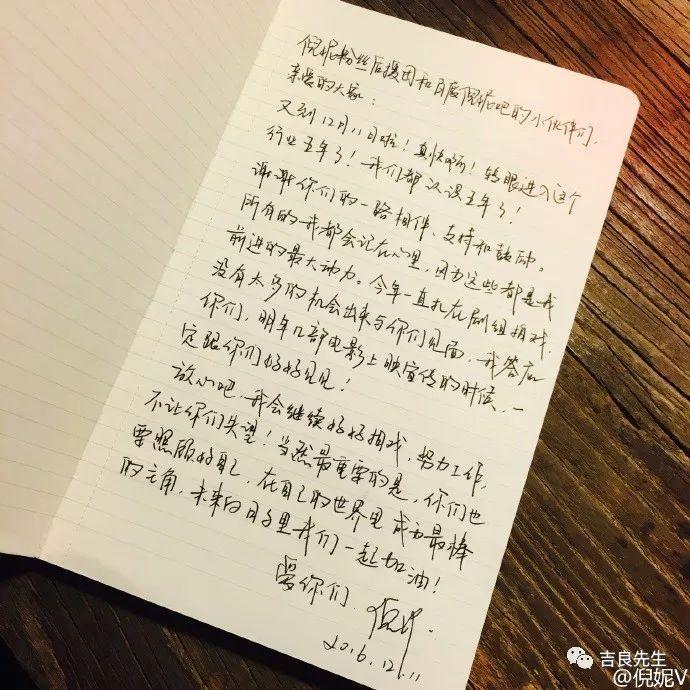 倪妮粉丝后援团和百度倪妮吧的小伙伴们,
亲爱的大家:
又到12月11日啦!真快啊!转眼进入这个
行业五年了!我们都认识五年了!
谢谢你们的一路相伴、支持和鼓励。
所有的我都会记在心里,因为这些都是我
前进的最大动力。今年一直扎在剧组拍戏,
没有太多的机会出来与你们见面,我答应
你们,明年几部电影上映宣传的时候,一
定跟你们好好见见!
放心吧,我会继续好好拍戏,努力工作,
不让你们失望!当然最重要的是,你们也
要照顾好自己,在自己的世界里成为最棒
的主角,未来的日子里我们一起加油!
爱你们 倪妮.
2016.12.11
吉良先生
@倪妮V